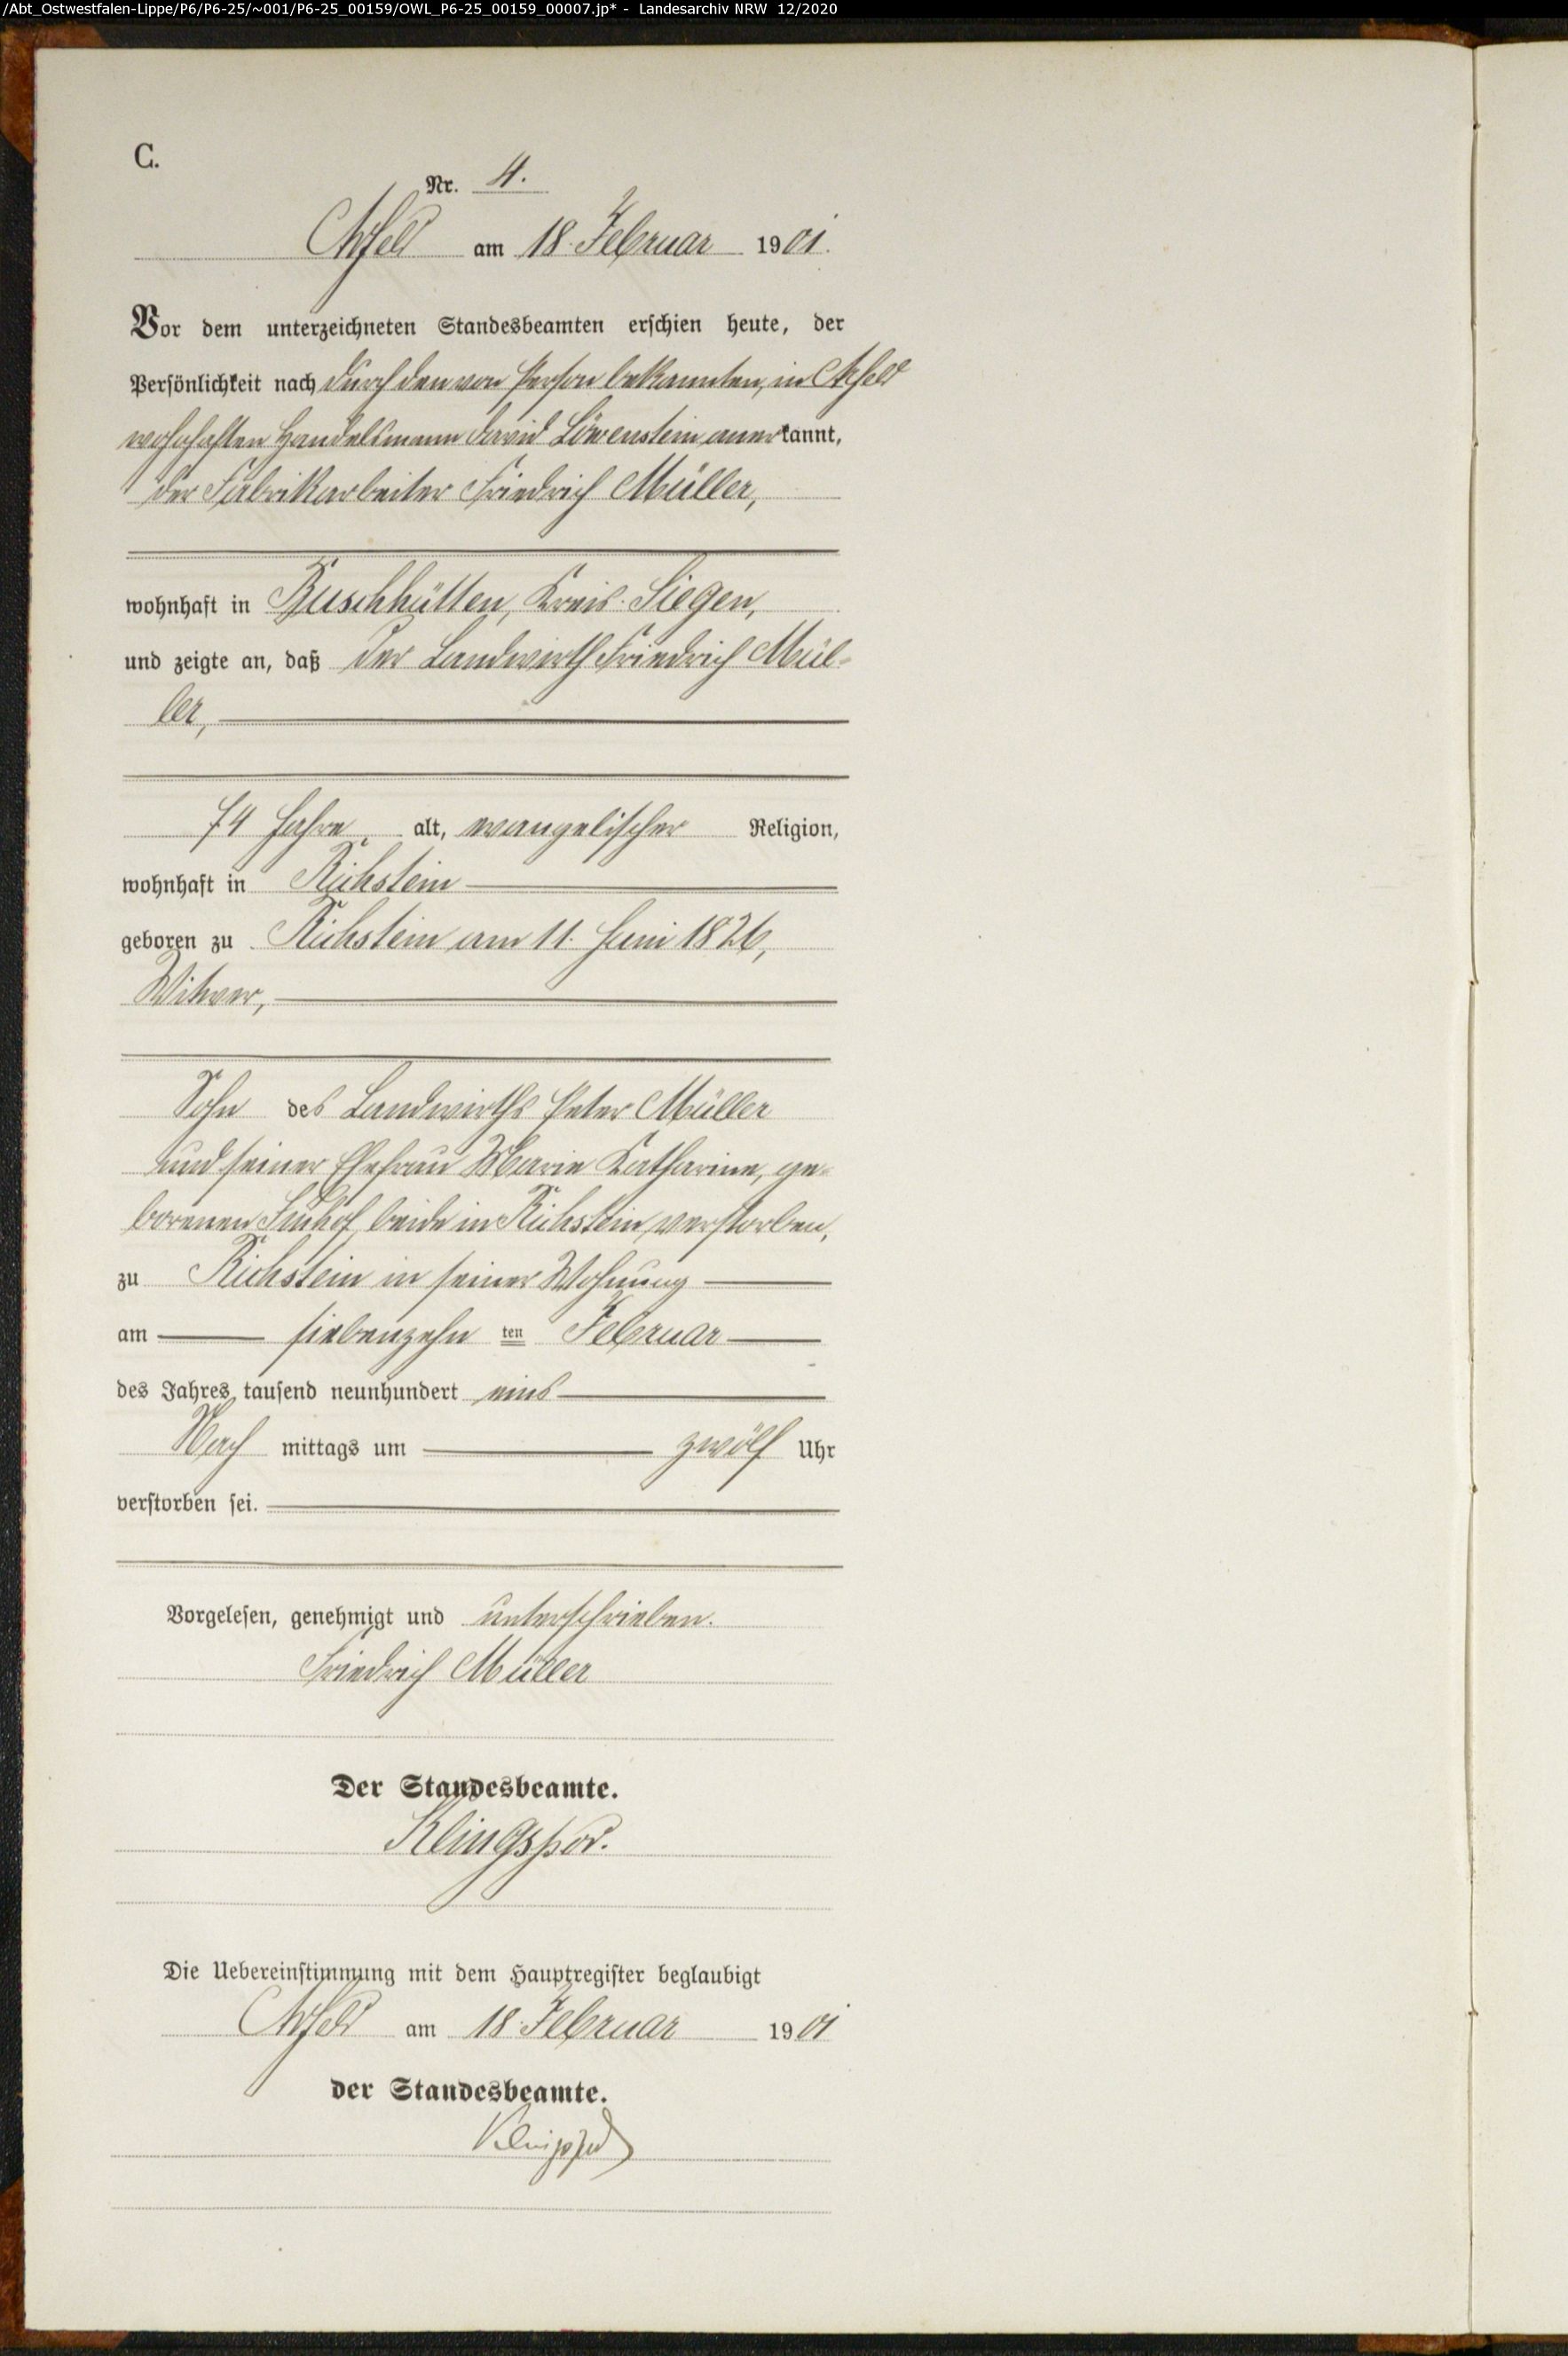 /Abt_Ostwestfalen-Lippe/P6/P6-25/~001/P6-25_00159/OWL_P6-25_00159_00007.jp* - Landesarchiv NRW 12/2020
C.
Nr. 4.
Arfeld am 18. Februar 1901.
Vor dem unterzeichneten Standesbeamten erschien heute, der
Persönlichkeit nach durch den von Person bekannten, in Arfeld
wohnhaften Handelsmann David Löwenstein anerkannt,
der Fabrikarbeiter Friedrich Müller,
wohnhaft in Buschhütten, Kreis Siegen,
und zeigte an, daß der Landwirth Friedrich Mül-
ler,
74 Jahre alt, evangelischer Religion,
wohnhaft in Richstein
geboren zu Richstein am 11. Juni 1826,
Witwer,
Sohn des Landwirths Peter Müller
und seiner Ehefrau Marie Katharine, ge-
borenen beide in Richstein verstorben,
zu Richstein in seiner Wohnung
am siebenzehn ten Februar
des Jahres tausend neunhundert eins
Nach mittags um zwölf Uhr
verstorben sei.
Vorgelesen, genehmigt und unterschrieben.
Friedrich Müller
Der Standesbeamte.
Klingspor.
Die Uebereinstimmung mit dem Hauptregister beglaubigt
Arfeld am 18. Februar 1901
der Standesbeamte.
Klingspor